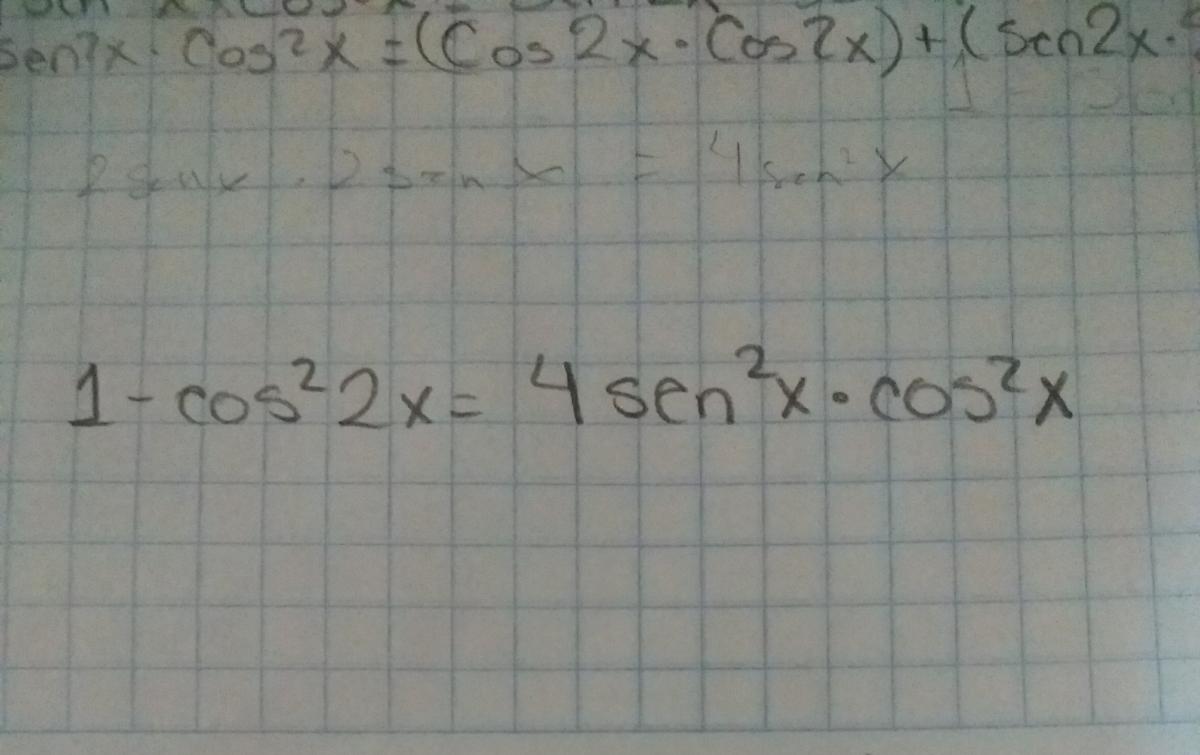 sen²x · Cos²x = (Cos 2x · Cos 2x) + ( sen 2x ·
2 sen x . 2 sen x = 4 sen² x
1 - cos² 2x = 4 sen²x · cos²x